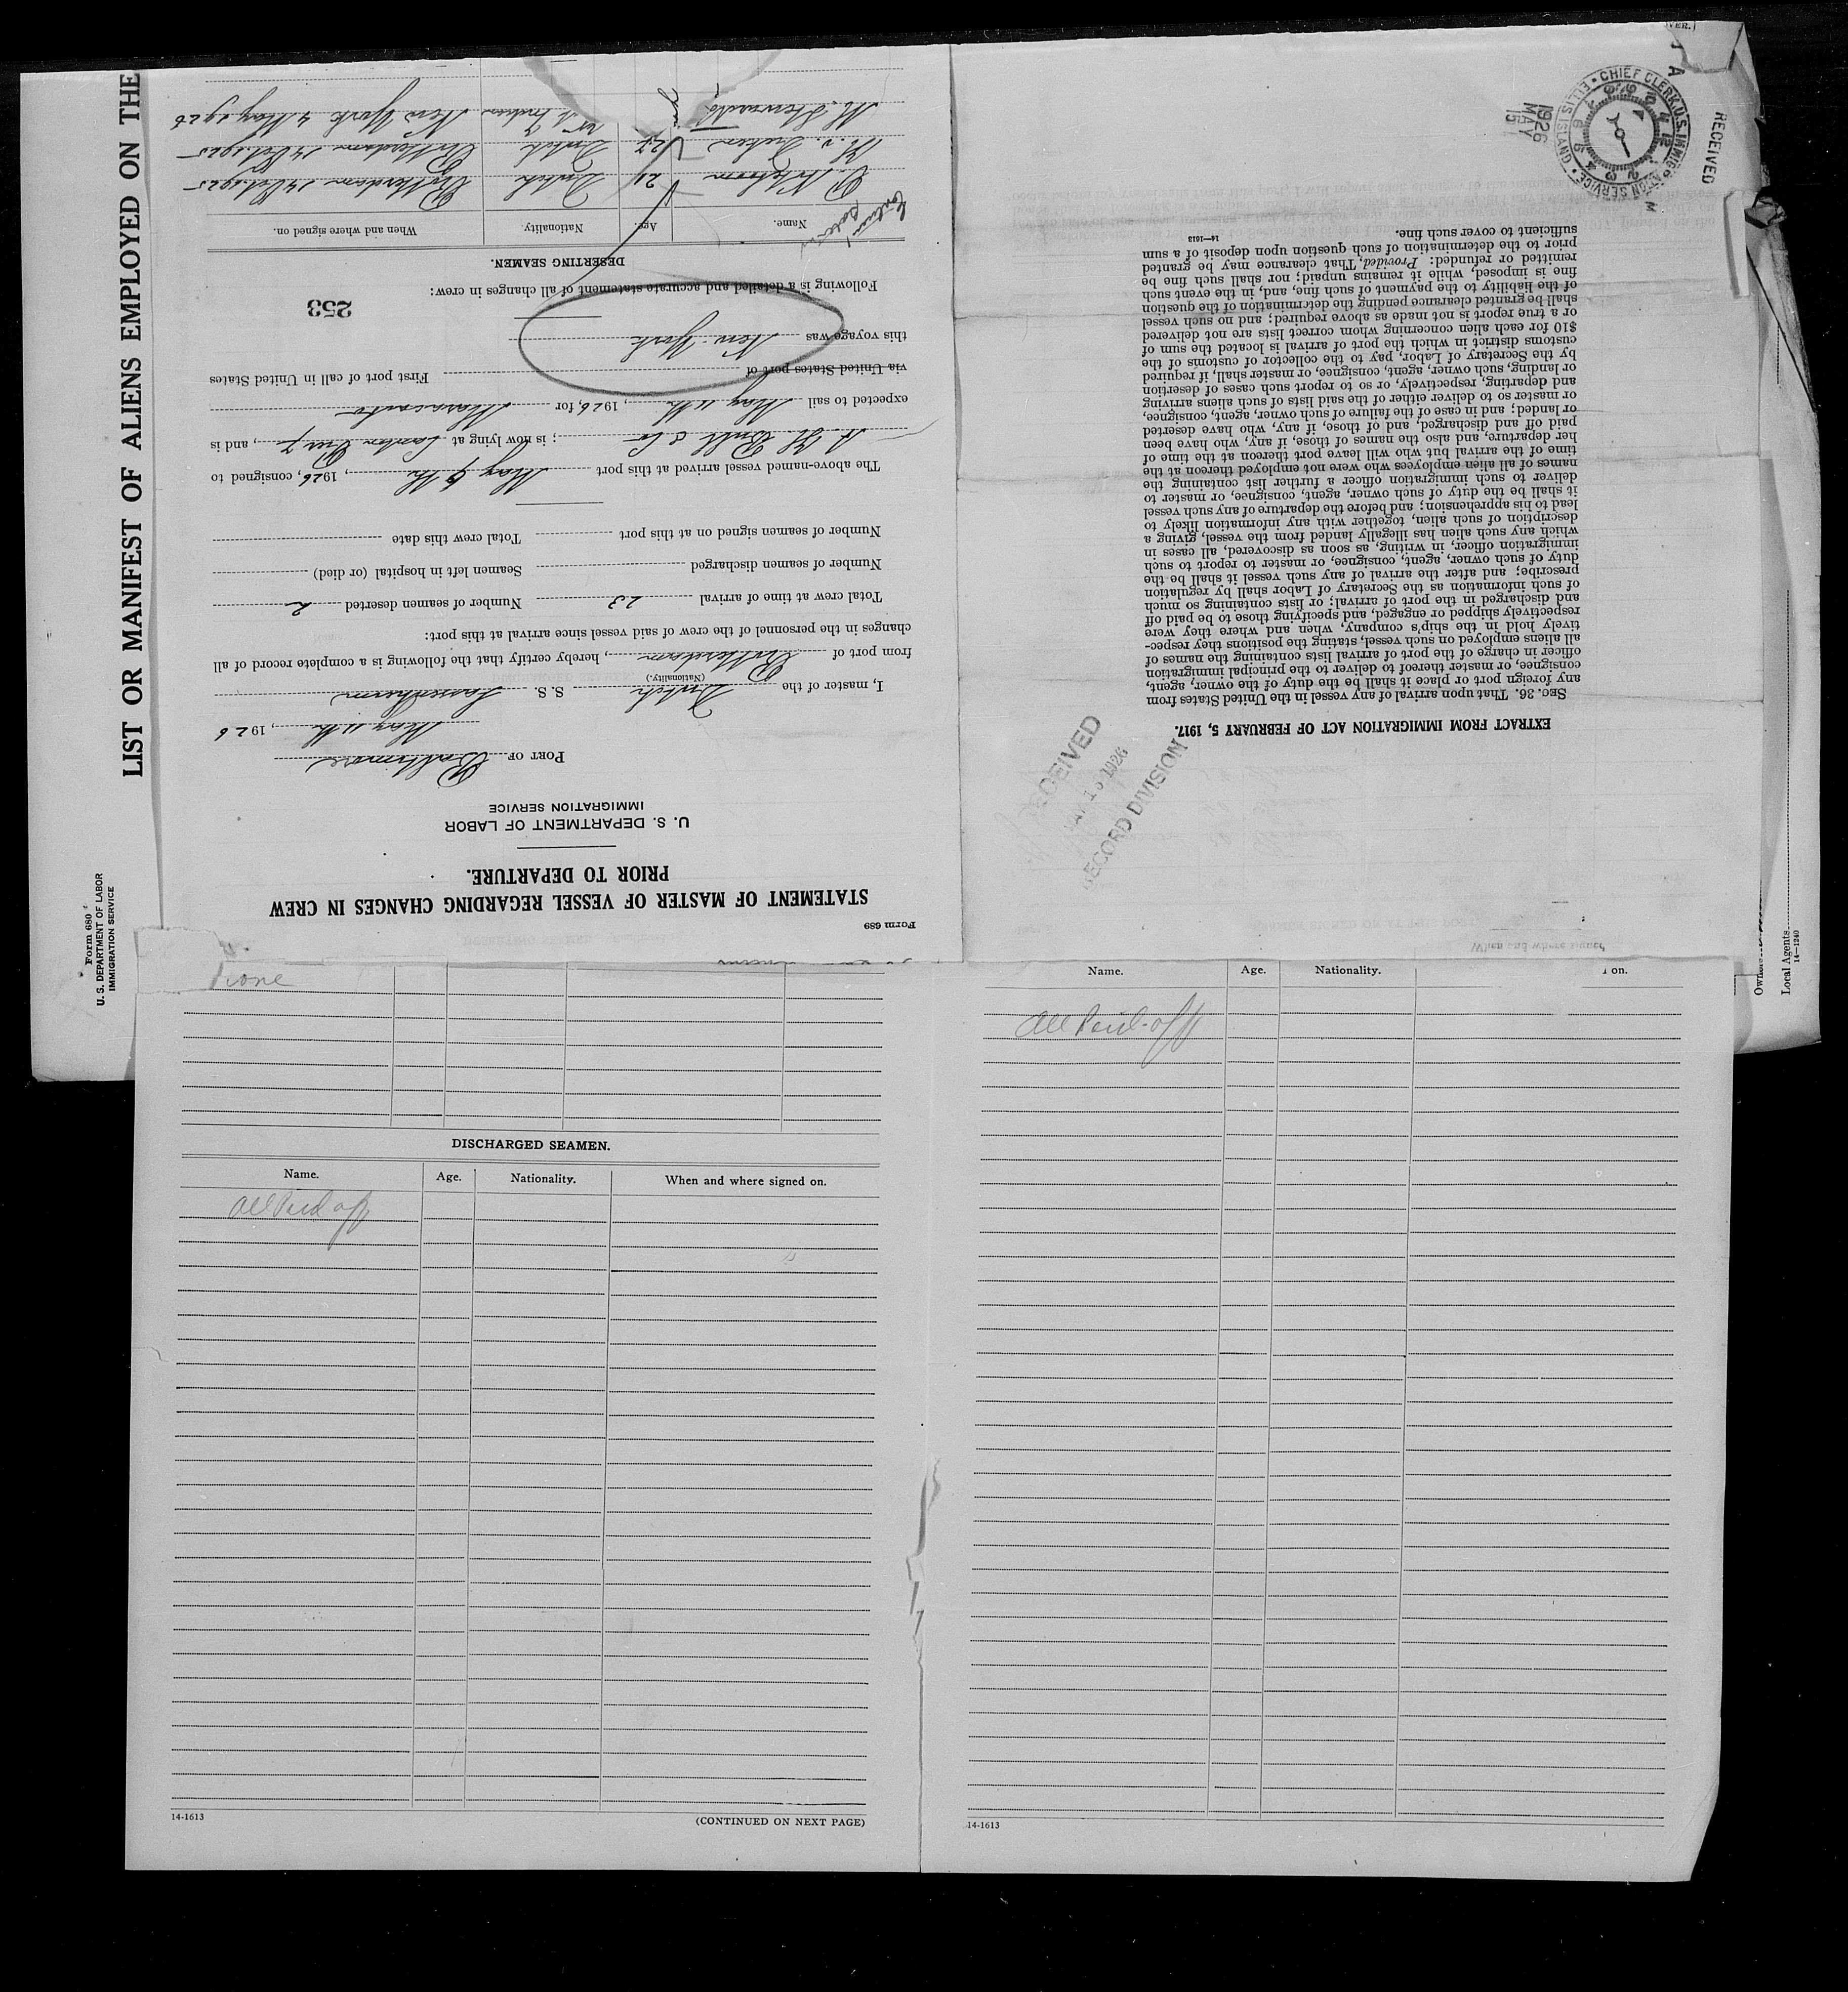 LIST OR MANIFEST OF ALIENS EMPLOYED ON THE
Form 680
U. S. DEPARTMENT OF LABOR
IMMIGRATION SERVICE
Form 689
STATEMENT OF MASTER OF VESSEL REGARDING CHANGES IN CREW
PRIOR TO DEPARTURE.
U. S. DEPARTMENT OF LABOR
IMMIGRATION SERVICE
PORT OF Baltimore
May 11th, 1926
I, master of the Dutch S. S.
(Nationality.)
from port of Rotterdam, hereby certify that the following is a complete record of all
changes in the personnel of the crew of said vessel since arrival at this port:
Total crew at time of arrival 23 Number of seamen deserted 2
Number of seamen discharged Seamen left in hospital (or died)
Number of seamen signed on at this port Total crew this date
The above-named vessel arrived at this port May 9th, 1926, consigned to
A. H. Bull & Co; is now lying at Canton Pier 7, and is
expected to sail May 11th, 1926, for Maracaibo
via United States port of First port of call in United States
this voyage was New York
253
Following is a detailed and accurate statement of all changes in crew:
DESERTING SEAMEN.
Name. Age. Nationality. When and where signed on.
21 Dutch Rotterdam 14 Oct. 1925
27 Dutch Rotterdam 14 Oct. 1925
New York 4 May 1926
EXTRACT FROM IMMIGRATION ACT OF FEBRUARY 5, 1917.
SEC. 36. That upon arrival of any vessel in the United States from
any foreign port or place it shall be the duty of the owner, agent,
consignee, or master thereof to deliver to the principal immigration
officer in charge of the port of arrival lists containing the names of
all aliens employed on such vessel, stating the positions they respec-
tively hold in the ship's company, when and where they were
respectively shipped or engaged, and specifying those to be paid off
and discharged in the port of arrival; or lists containing so much
of such information as the Secretary of Labor shall by regulation
prescribe; and after the arrival of any such vessel it shall be the
duty of such owner, agent, consignee, or master to report to such
immigration officer, in writing, as soon as discovered, all cases in
which any such alien has illegally landed from the vessel, giving a
description of such alien, together with any information likely to
lead to his apprehension; and before the departure of any such vessel
it shall be the duty of such owner, agent, consignee, or master to
deliver to such immigration officer a further list containing the
names of all alien employees who were not employed thereon at the
time of the arrival but who will leave port thereon at the time of
her departure, and also the names of those, if any, who have been
paid off and discharged, and of those, if any, who have deserted
or landed; and in case of the failure of such owner, agent, consignee,
or master so to deliver either of the said lists of such aliens arriving
and departing, respectively, or so to report such cases of desertion
or landing, such owner, agent, consignee, or master shall, if required
by the Secretary of Labor, pay to the collector of customs of the
customs district in which the port of arrival is located the sum of
$10 for each alien concerning whom correct lists are not delivered
or a true report is not made as above required; and no such vessel
shall be granted clearance pending the determination of the question
of the liability to the payment of such fine, and, in the event such
fine is imposed, while it remains unpaid; nor shall such fine be
remitted or refunded: Provided, That clearance may be granted
prior to the determination of such question upon deposit of a sum
sufficient to cover such fine.
14—1613
RECEIVED
CHIEF CLERK, U.S. IMMIGRATION SERVICE
ELLIS ISLAND
1926
MAY
15
RECEIVED
1926
RECORD DIVISION
When and where signed
Local Agents
14—1240
None
DISCHARGED SEAMEN.
Name. Age. Nationality. When and where signed on.
All Paid off
14-1613 (CONTINUED ON NEXT PAGE)
Name. Age. Nationality. on.
All Paid-off
14-1613